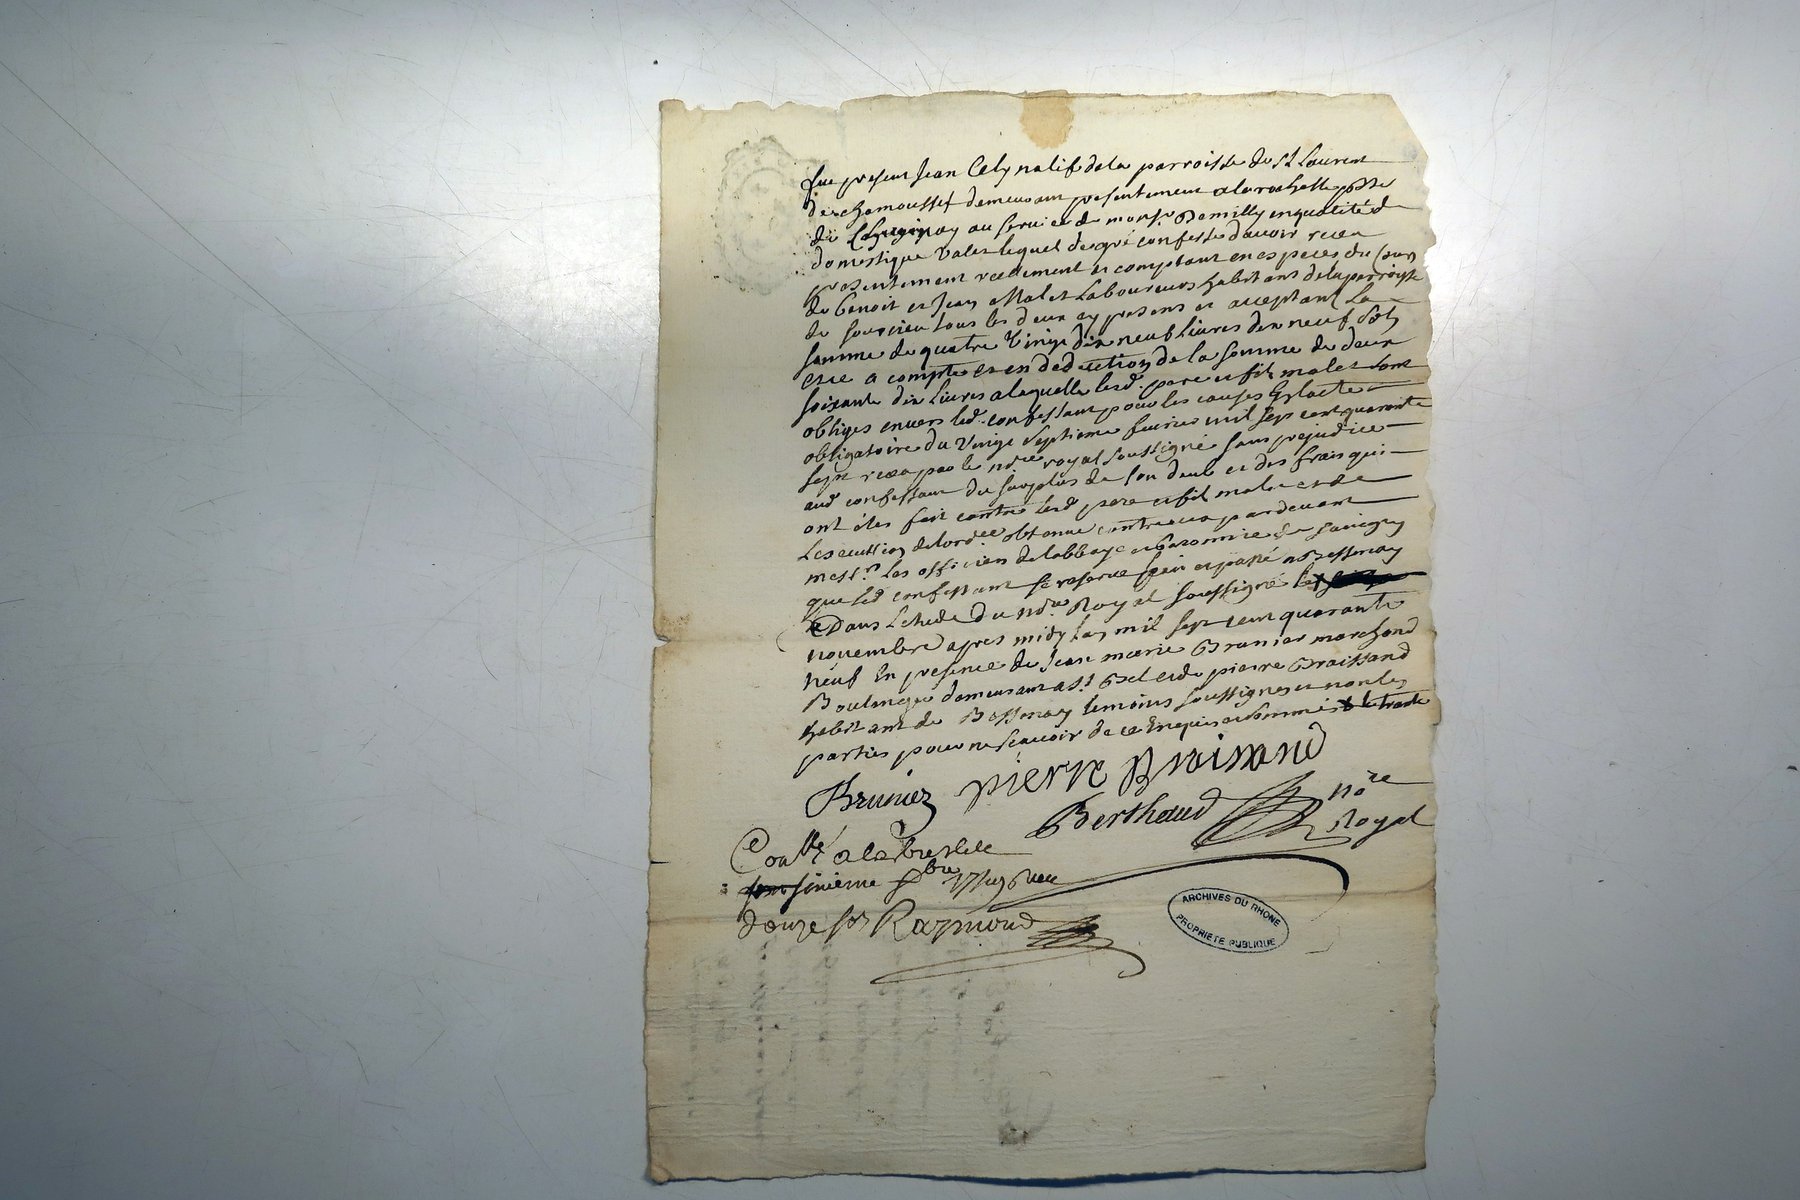 fut present Jean Cely natif de la parroisse de st Laurent
de chamousset demeurant presentement a la rochette psse
de au service de monsr Demilly en qualité de
domestique valet lequel de gré confesse davoir receu
presentement reellement et comptant en especes du cours
de Benoit et Jean Malet Laboureurs habitants de la parroisse
de sourcieu tous les deux cy presens et acceptant La
somme de quatre vingt dix neuf livres dix neuf sols
et ce a compte et en deduction de la somme de deux
soixante dix livres a laquelle lesd. pere et fils malet sont
obligés envers led. confessant pour les causes Et lacte
obligatoire du vingt septieme fevrier mil sept cent quarante
sept receu par le nore royal soussigné sans prejudice
aud confessant du surplus de son deub et des frais qui
ont étés fait contre lesd pere et fils malet et de
Lexecution de lordce obtenue contre eux pardevant
messrs les officiers de labbaye et baronnie de savigny
que led confessant se reserve fait et passé a Bessenay
Dans Letude du nore Royal soussigné le
novembre apres midy lan mil sept cent quarante
neuf En presence de Jean marie Brunier marchand
Boulanger demeurant a st Bel et de pierre Braissand
habitant de Bessenay temoins soussignes et non les
parties pour ne scavoir de ce Enquis et sommés
Brunier pierre Braissand
Berthaud nore
Royal
Conllé a la bresle le
sixieme xbre 1749 Reçu
douze sols Raymond
ARCHIVES DU RHONE
PROPRIETE PUBLIQUE